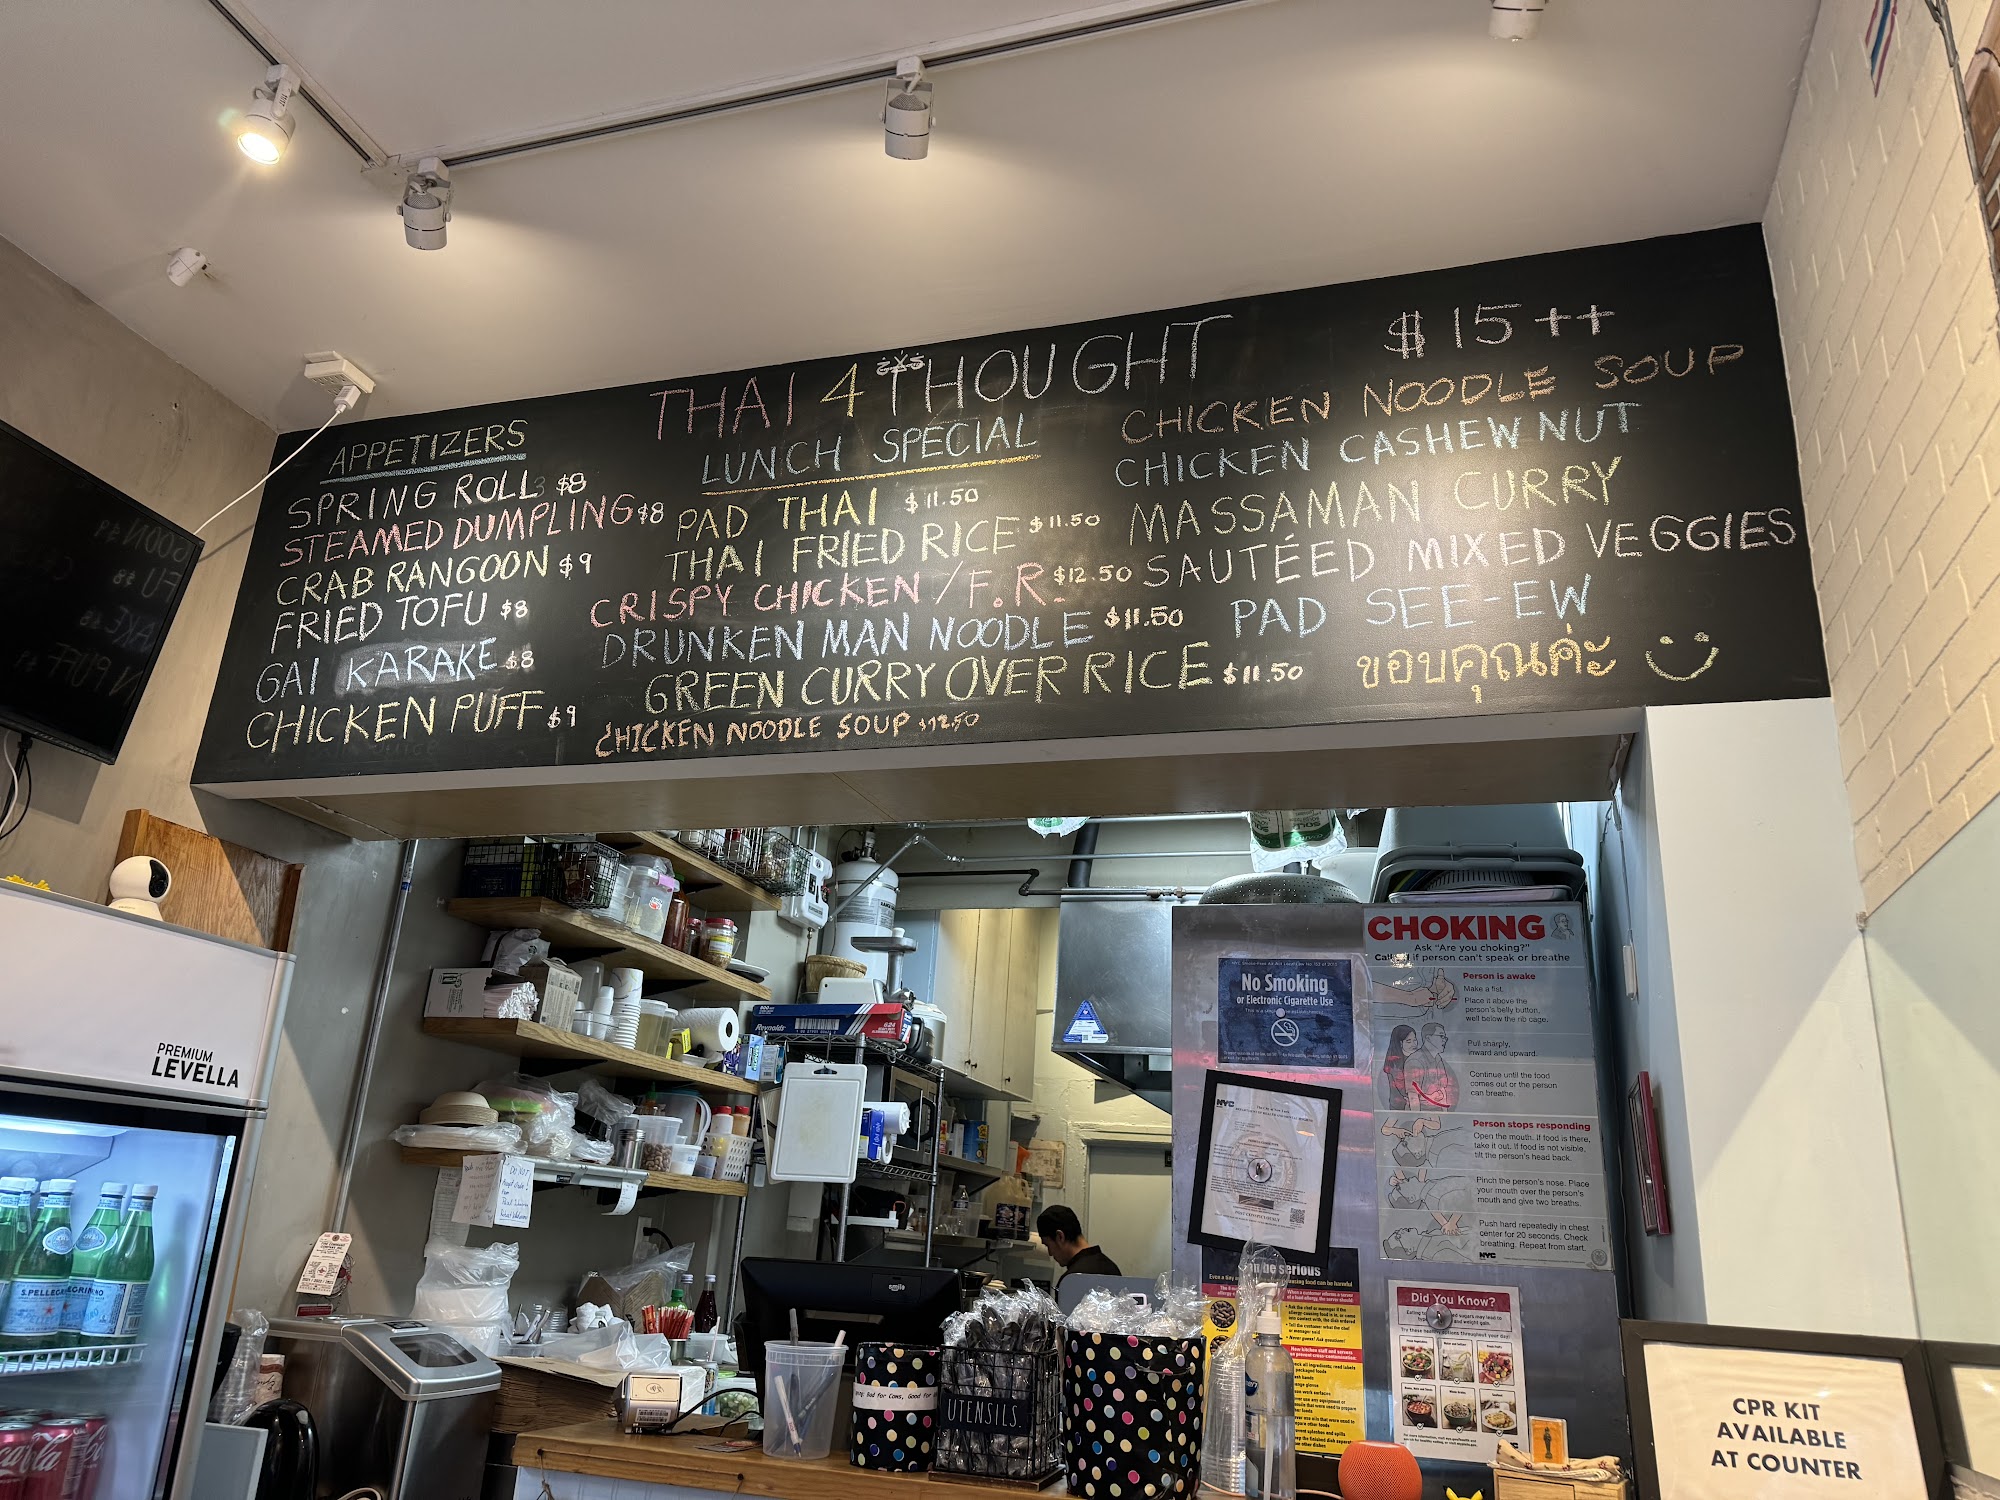 THAI 4 THOUGHT
APPETIZERS
SPRING ROLL 3 $8
STEAMED DUMPLING $8
CRAB RANGOON $9
FRIED TOFU $8
GAI KARAKE $8
CHICKEN PUFF $9
LUNCH SPECIAL
PAD THAI $11.50
THAI FRIED RICE $11.50
CRISPY CHICKEN / F.R. $12.50
DRUNKEN MAN NOODLE $11.50
GREEN CURRY OVER RICE $11.50
CHICKEN NOODLE SOUP $12.50
$15++
CHICKEN NOODLE SOUP
CHICKEN CASHEW NUT
MASSAMAN CURRY
SAUTÉED MIXED VEGGIES
PAD SEE-EW
ขอบคุณค่ะ
PREMIUM
LEVELLA
S.PELLEGRINO
Coca-Cola
Reynolds
624
smile
UTENSILS.
No Smoking
or Electronic Cigarette Use
NYC
CHOKING
Ask "Are you choking?"
if person can't speak or breathe
Person is awake
Make a fist.
Place it above the
person's belly button,
well below the rib cage.
Pull sharply,
inward and upward.
Continue until the food
comes out or the person
can breathe.
Person stops responding
Open the mouth. If food is there,
take it out. If food is not visible,
tilt the person's head back.
Pinch the person's nose. Place
your mouth over the person's
mouth and give two breaths.
Push hard repeatedly in chest
center for 20 seconds. Check
breathing. Repeat from start.
NYC
be serious
Did You Know?
CPR KIT
AVAILABLE
AT COUNTER